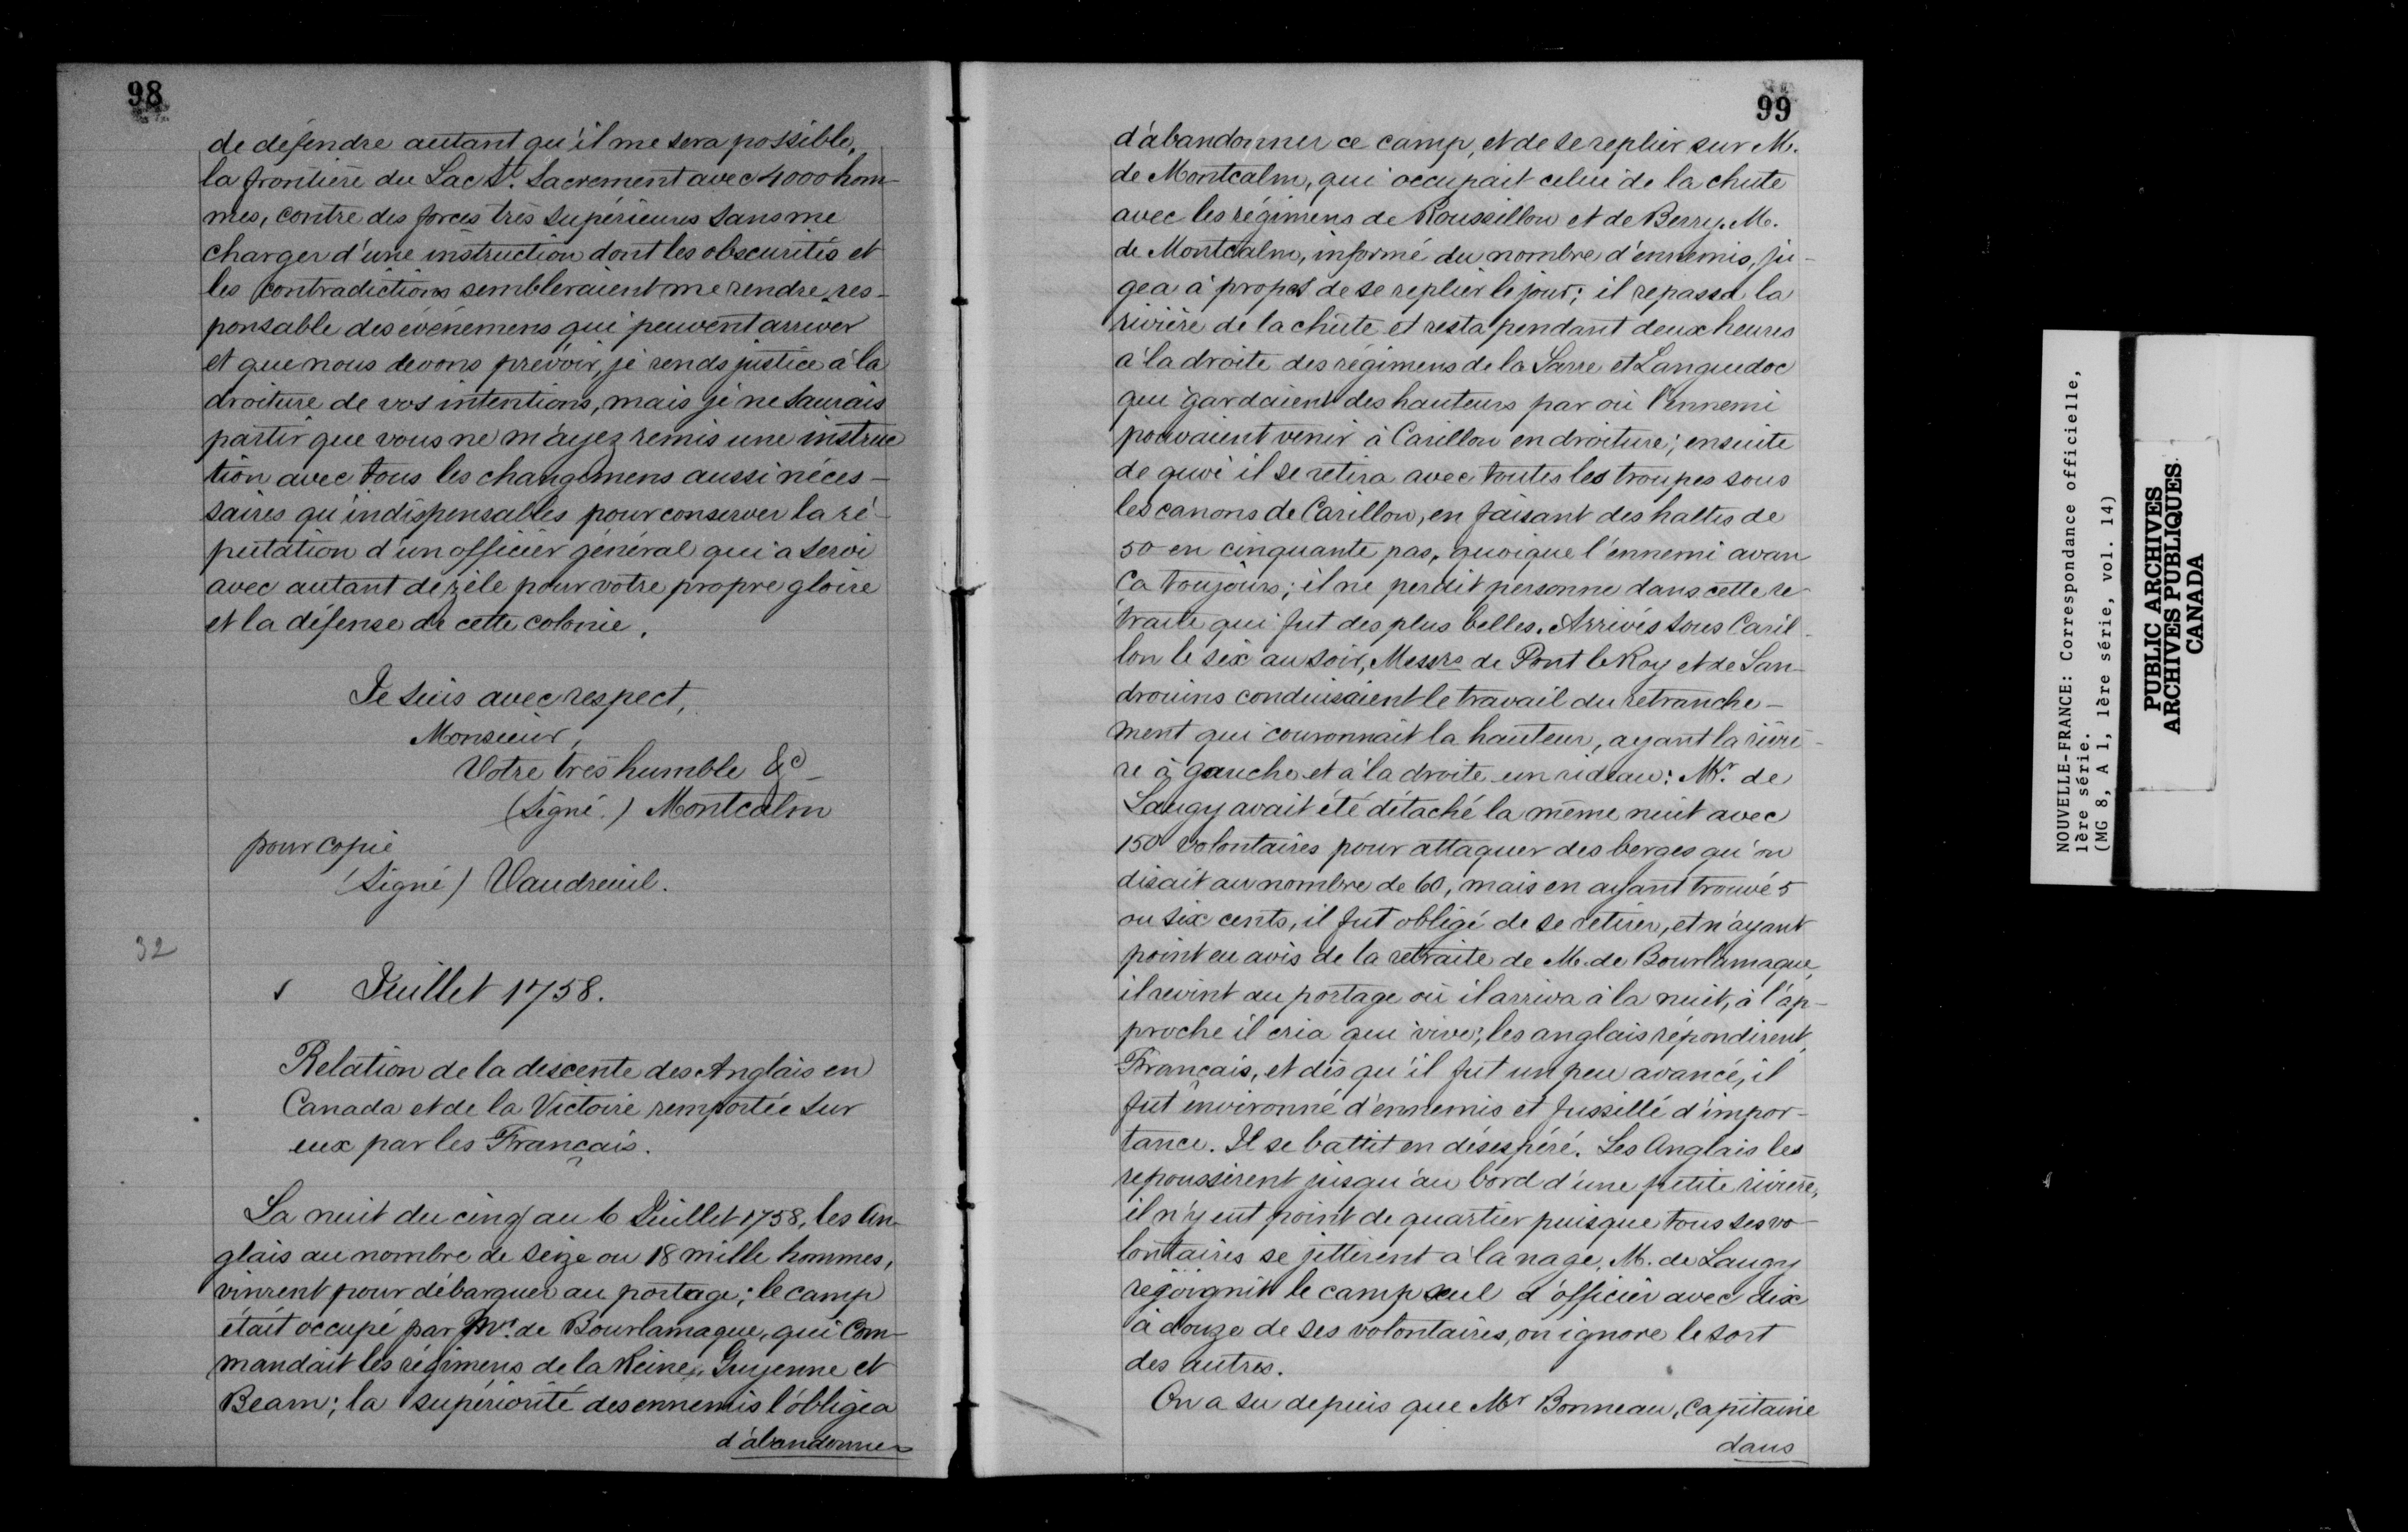 98
de défendre autant qu'il me sera possible,
la frontière du Lac St. Sacrement avec 4000 hom-
mes, contre des forces très supérieures sans me
charger d'une instruction dont les obscurités et
les contradictions sembleraient me rendre res-
ponsable des événemens qui peuvent arriver
et que nous devons prévoir, je rends justice à la
droiture de vos intentions, mais je ne saurais
partir que vous ne m'ayez remis une instruc
tion avec tous les changemens aussi néces-
saires qu'indispensables pour conserver la ré-
putation d'un officier général qui a servi
avec autant de zèle pour votre propre gloire
et la défense de cette colonie.
Je suis avec respect,
Monsieur,
Votre très humble &c
(Signé.) Montcalm
pour copie
(Signé) Vaudreuil.
32
Juillet 1758.
Relation de la descente des Anglais en
Canada et de la Victoire remportée sur
eux par les Français.
La nuit du cinq au 6 Juillet 1758, les An-
glais au nombre de seize ou 18 mille hommes,
vinrent pour débarquer au portage; le camp
était occupé par Mr. de Bourlamaque, qui Com-
mandait les régimens de la Reine, Guyenne et
Bearn; la supériorité des ennemis l'obligea
d'abandonner
99
d'abandonner ce camp, et de se replier sur M.
de Montcalm, qui occupait celui de la chute
avec les régimens de Roussillon et de Berry. M.
de Montcalm, informé du nombre d'ennemis, ju-
gea à propos de se replier le jour; il repassa la
rivière de la chûte et resta pendant deux heures
à la droite des régimens de la Sarre et Languedoc
qui gardaient des hauteurs par où l'ennemi
pouvaient venir à Carillon en droiture; ensuite
de quoi il se retira avec toutes les troupes sous
les canons de Carillon, en faisant des haltes de
50 en cinquante pas, quoique l'ennemi avan
ça toujours; il ne perdit personne dans cette re-
traite qui fut des plus belles. Arrivés sous Caril-
lon le six au soir, Messrs de Pont le Roy et de San-
drouins conduisaient le travail du retranche-
ment qui couronnait la hauteur, ayant la riviè-
re à gauche et à la droite un rideau: Mr. de
Laugy avait été détaché la même nuit avec
150 volontaires pour attaquer des berges qu'on
disait au nombre de 60, mais en ayant trouvé 5
ou six cents, il fut obligé de se retirer, et n'ayant
point eu avis de la retraite de M. de Bourlamaque,
il revint au portage où il arriva à la nuit, à l'ap-
proche il cria qui vive; les anglais répondirent,
Français, et dès qu'il fut un peu avancé, il
fut environné d'ennemis et fussillé d'impor-
tance. Il se battit en désespéré. Les Anglais les
repoussèrent jusqu'au bord d'une petite rivière,
il n'y eut point de quartier puisque tous ses vo-
lontaires se jettèrent à la nage. M. de Laugy
rejoignit le camp seul d'officier avec dix
à douze de ses volontaires, on ignore le sort
des autres.
On a su depuis que Mr Bonneau, Capitaine
dans
NOUVELLE-FRANCE: Correspondance officielle,
1ère série.
(MG 8, A 1, 1ère série, vol. 14)
PUBLIC ARCHIVES
ARCHIVES PUBLIQUES
CANADA